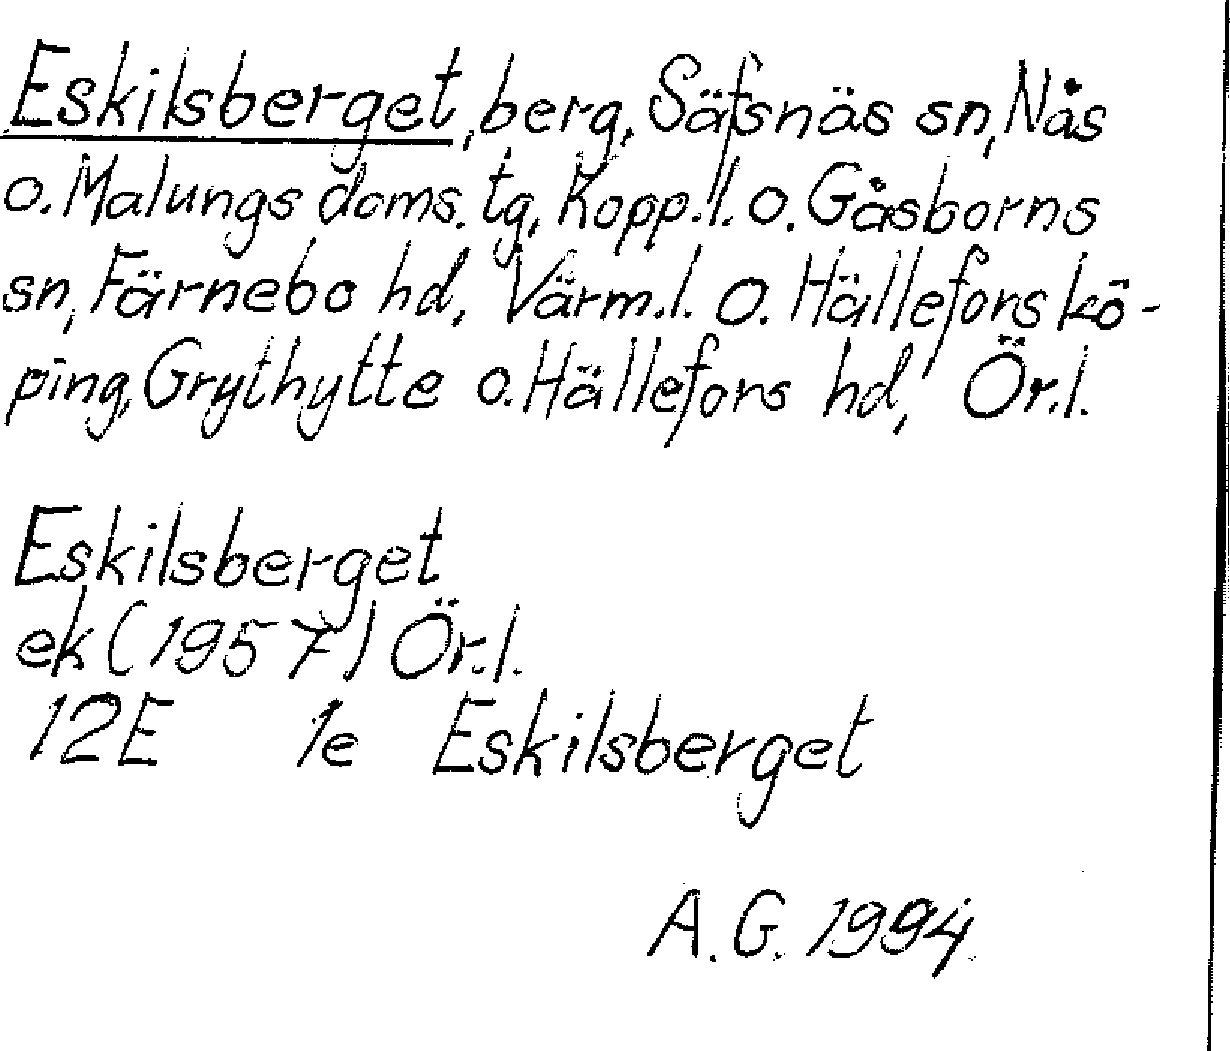 Eskilsberget, berg, Säfsnäs sn, Nås
o. Malungs doms. tg, Kopp. l. o. Gåsborns
sn, Färnebo hd, Värm. l. o. Hällefors kö-
ping, Grythytte o. Hällefors hd, Ör. l.
Eskilsberget
ek (1957) Ör. l.
12E 1e Eskilsberget
A. G. 1994